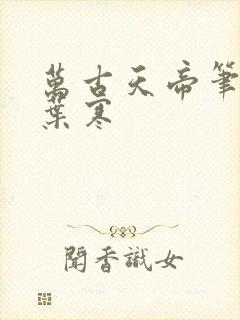 萬古天帝筆
葉寒
聞香識女